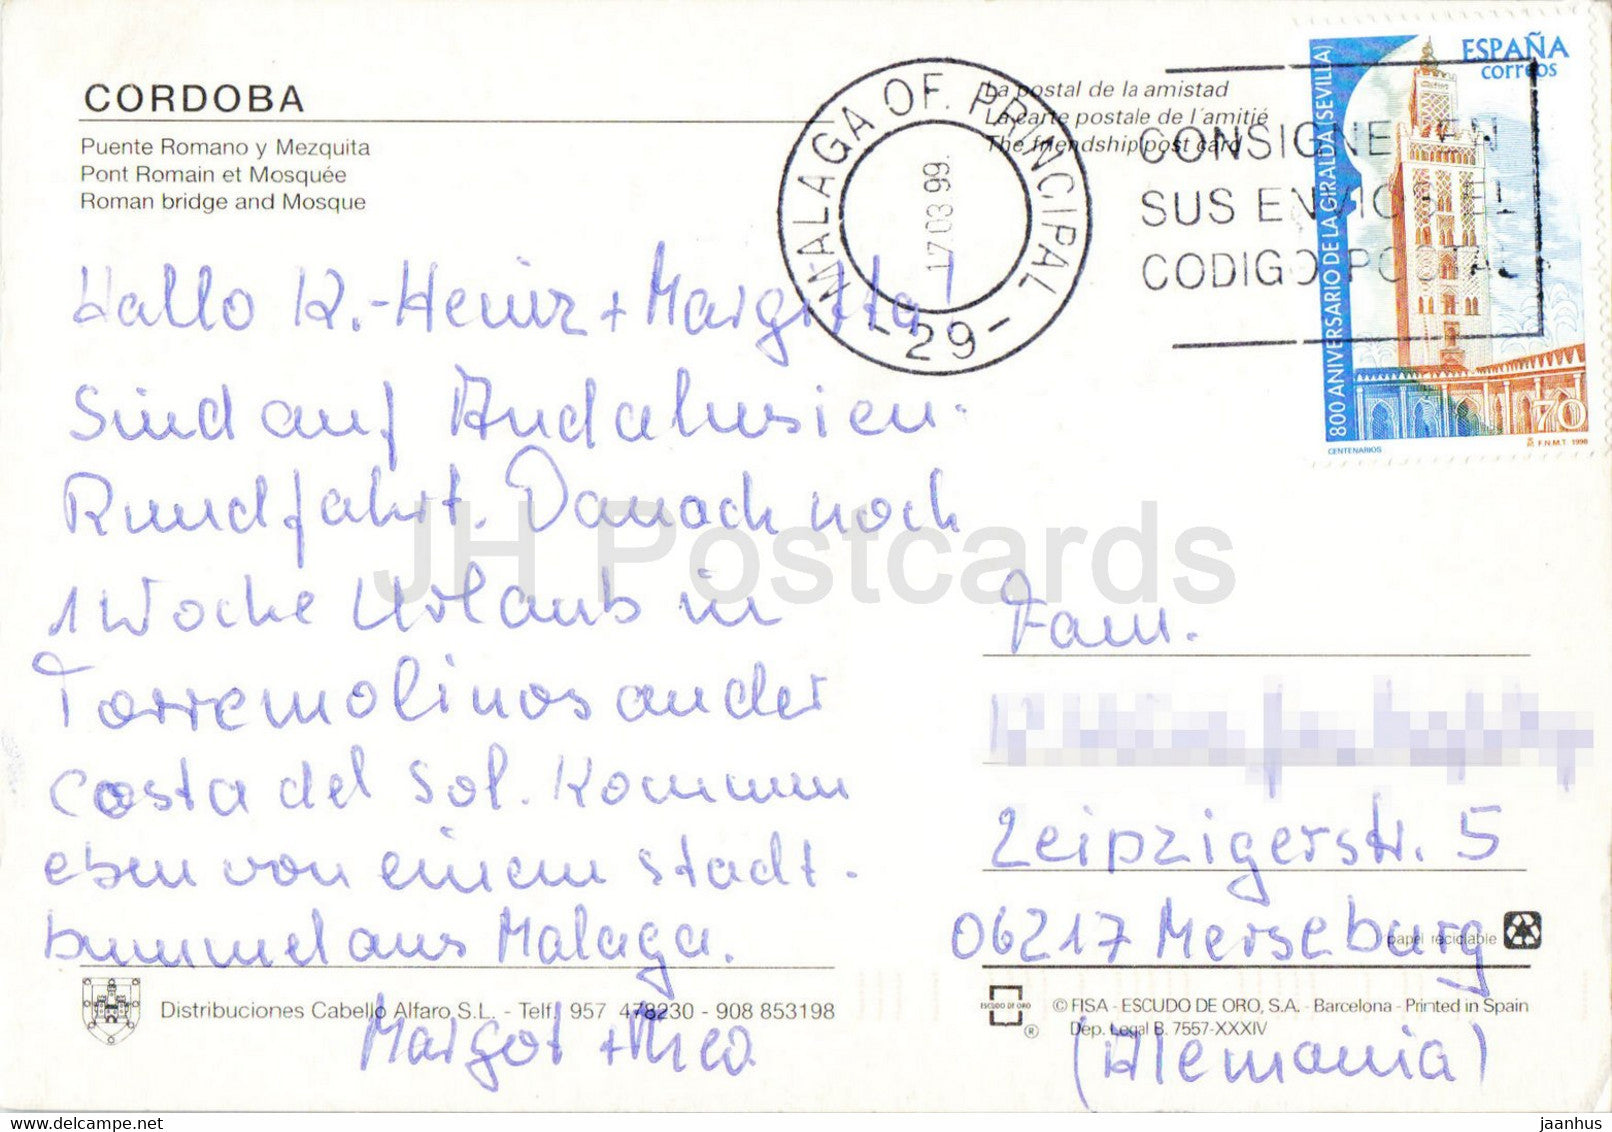 CORDOBA
Puente Romano y Mezquita
Pont Romain et Mosquée
Roman bridge and Mosque
La postal de la amistad
La carte postale de l'amitié
The friendship post card
MALAGA OF. PRINCIPAL
17 03 99
- 29 -
CONSIGNE EN
SUS ENVIOS EL
CODIGO POSTAL
ESPAÑA
correos
800 ANIVERSARIO DE LA GIRALDA (SEVILLA)
70
CENTENARIOS
F.N.M.T. 1998
Hallo K.-Heinz + Margitta!
Sind auf Andalusien-
Rundfahrt. Danach noch
1 Woche Urlaub in
Torremolinos an der
Costa del Sol. Kommen
eben von einem Stadt-
bummel aus Malaga.
Margot +
JH Postcards
Fam.
Leipzigerstr. 5
06217 Merseburg
(Alemania)
papel reciclable
Distribuciones Cabello Alfaro, S.L. - Telf. 957 478230 - 908 853198
ESCUDO DE ORO
®
© FISA - ESCUDO DE ORO, S.A. - Barcelona - Printed in Spain
Dep. Legal B. 7557-XXXIV
delcampe.net
jaanhus